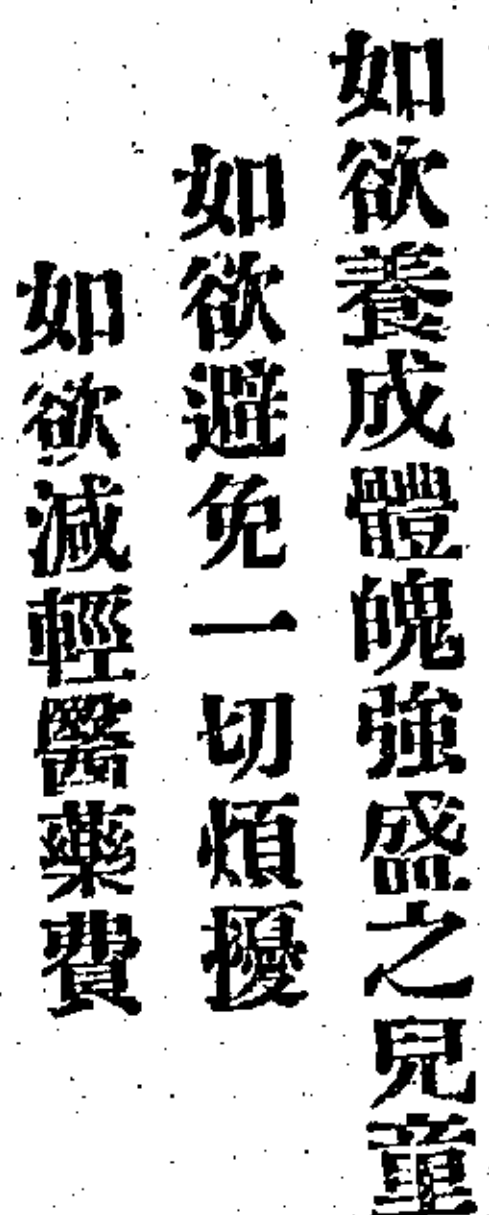 如欲養成體魄強盛之兒童
如欲避免一切煩擾
如欲減輕醫藥費